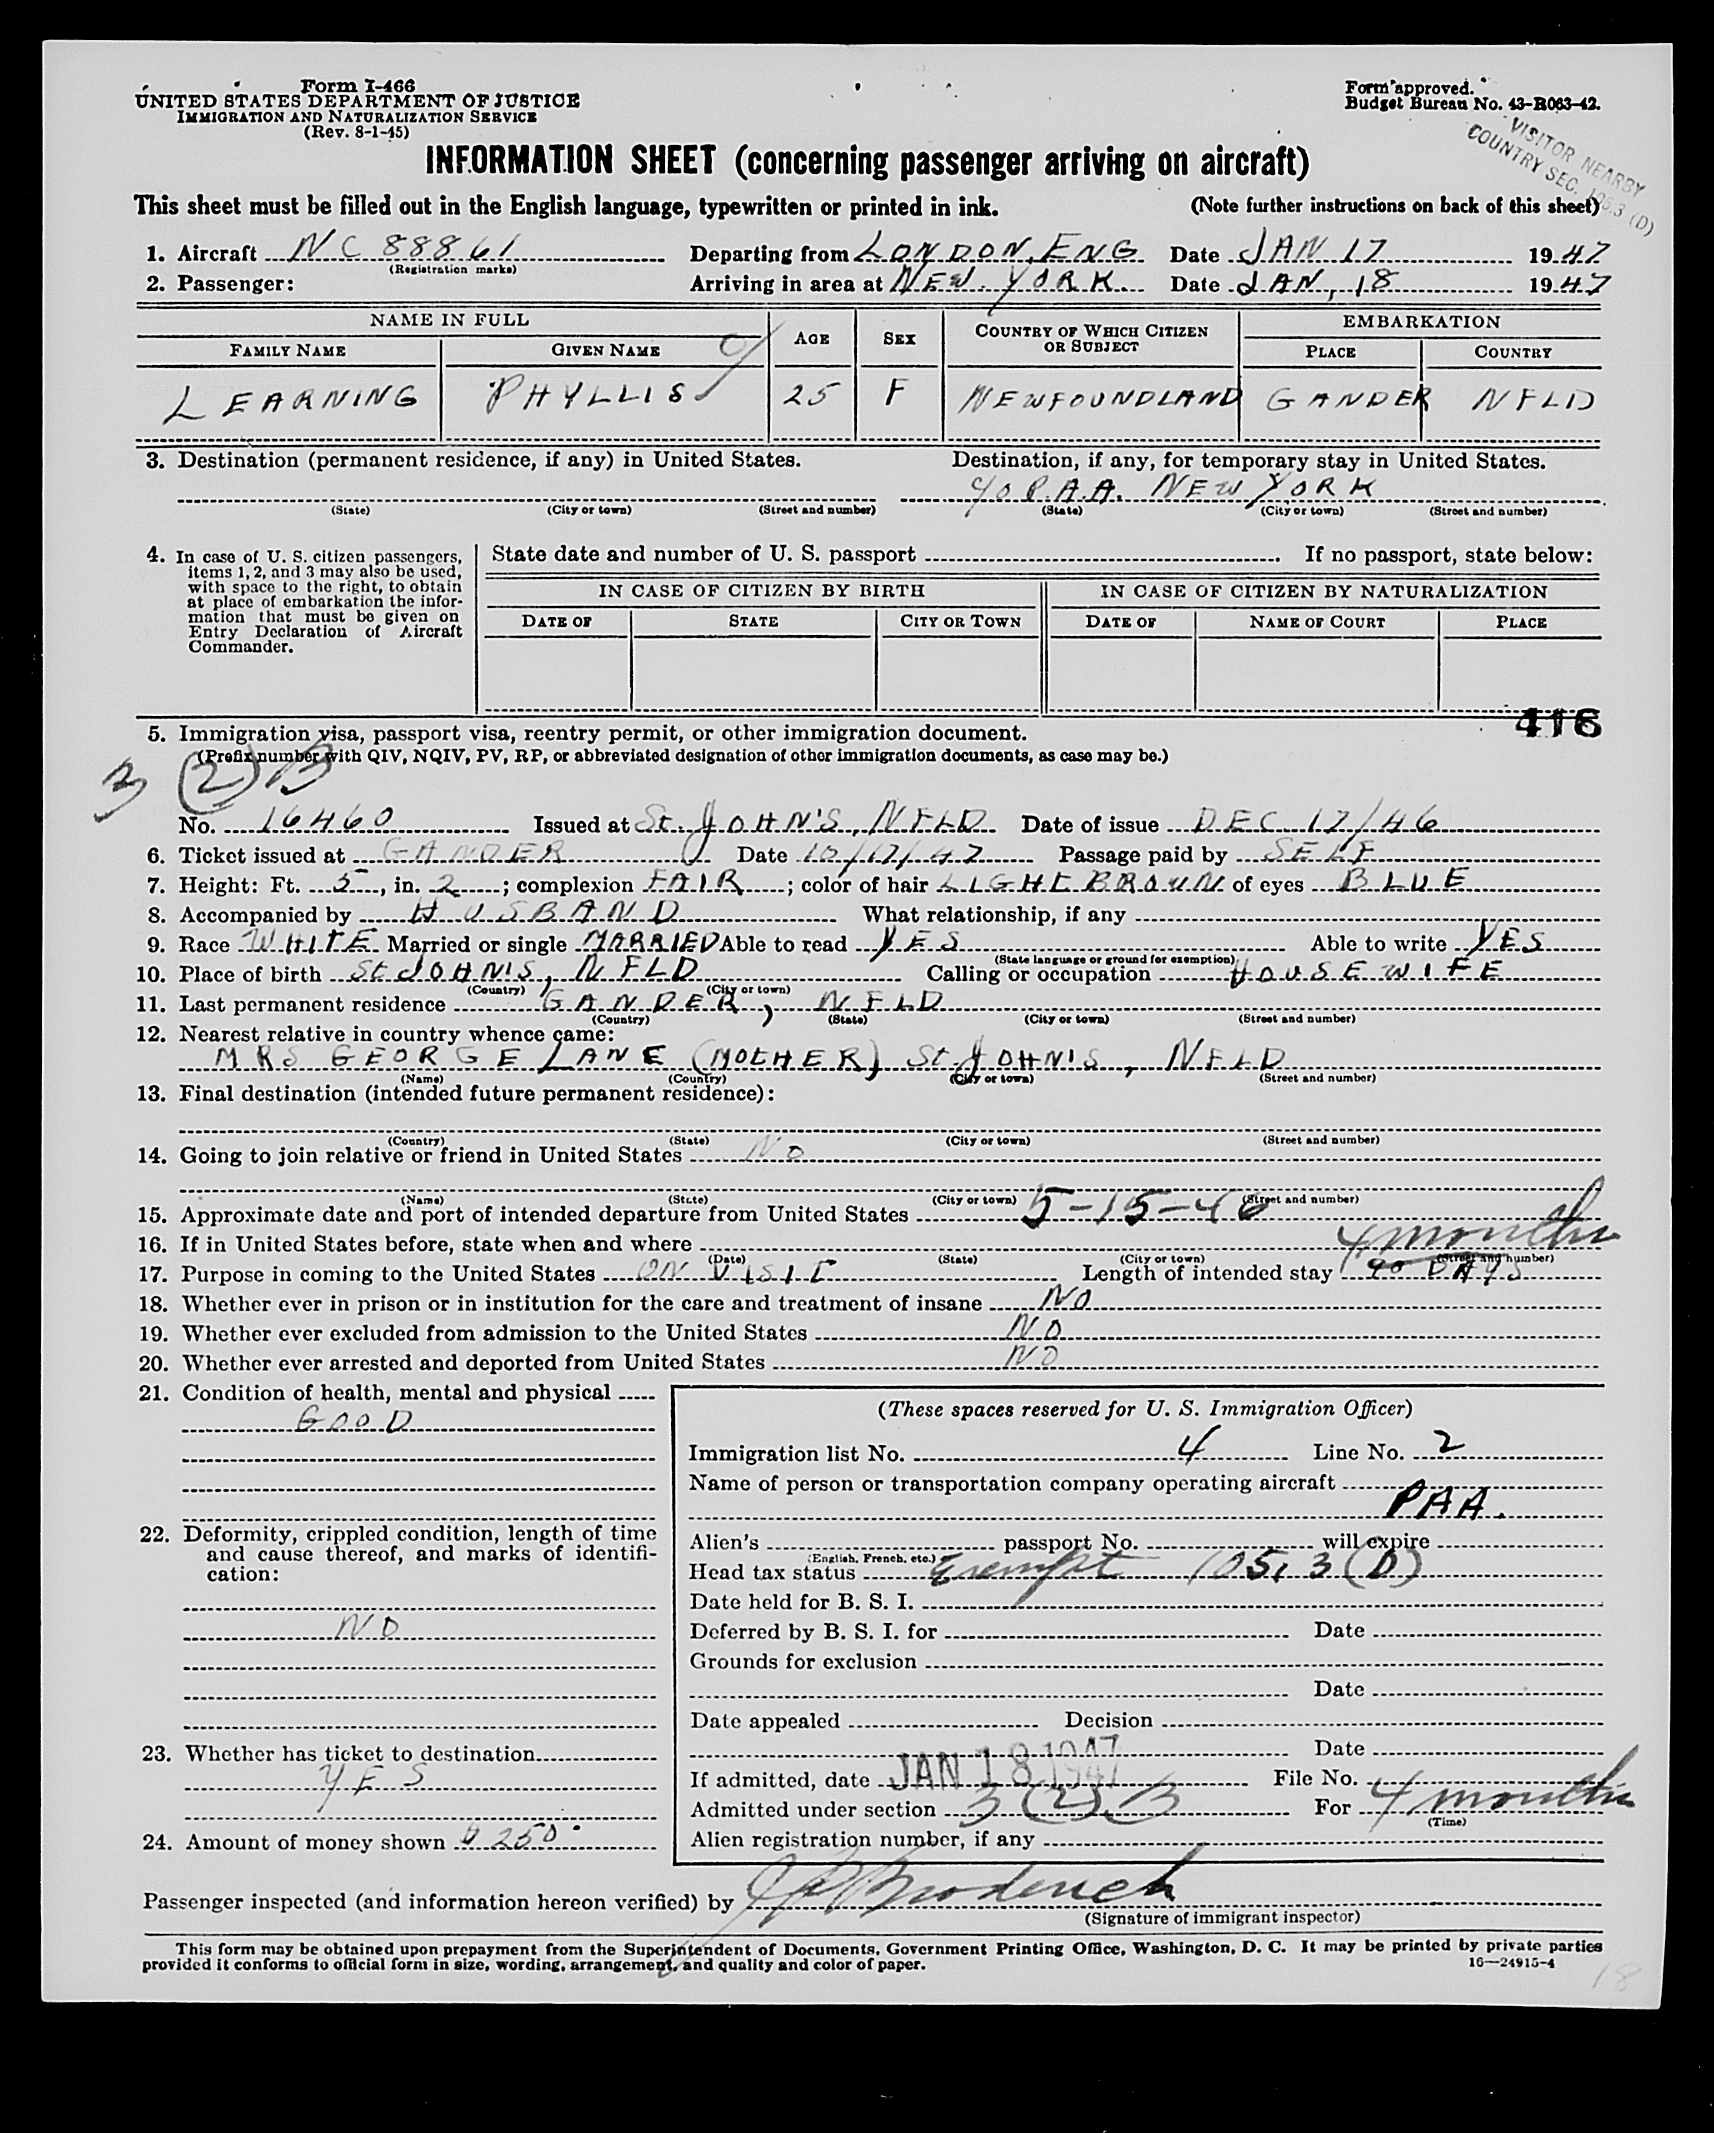 Form I-466
UNITED STATES DEPARTMENT OF JUSTICE
IMMIGRATION AND NATURALIZATION SERVICE
(Rev. 8-1-45)
Form approved.
Budget Bureau No. 43-R063-42.
VISITOR NEARBY
COUNTRY SEC. 105.3 (D)
INFORMATION SHEET (concerning passenger arriving on aircraft)
This sheet must be filled out in the English language, typewritten or printed in ink. (Note further instructions on back of this sheet)
1. Aircraft NC 88861 Departing from LONDON, ENG Date JAN 17 1947
(Registration marks)
2. Passenger: Arriving in area at NEW YORK. Date JAN, 18 1947
NAME IN FULL AGE SEX COUNTRY OF WHICH CITIZEN OR SUBJECT EMBARKATION
FAMILY NAME GIVEN NAME PLACE COUNTRY
LEARNING PHYLLIS 25 F NEWFOUNDLAND GANDER NFLD
3. Destination (permanent residence, if any) in United States. Destination, if any, for temporary stay in United States.
c/o P.A.A. NEW YORK
(State) (City or town) (Street and number) (State) (City or town) (Street and number)
4. In case of U. S. citizen passengers, items 1, 2, and 3 may also be used, with space to the right, to obtain at place of embarkation the information that must be given on Entry Declaration of Aircraft Commander.
State date and number of U. S. passport If no passport, state below:
IN CASE OF CITIZEN BY BIRTH IN CASE OF CITIZEN BY NATURALIZATION
DATE OF STATE CITY OR TOWN DATE OF NAME OF COURT PLACE
416
5. Immigration visa, passport visa, reentry permit, or other immigration document.
(Prefix number with QIV, NQIV, PV, RP, or abbreviated designation of other immigration documents, as case may be.)
3 (2) B
No. 16460 Issued at St. JOHN'S, NFLD Date of issue DEC 17/46
6. Ticket issued at GANDER Date 10/17/47 Passage paid by SELF
7. Height: Ft. 5, in. 2; complexion FAIR; color of hair LIGHT BROWN of eyes BLUE
8. Accompanied by HUSBAND What relationship, if any
9. Race WHITE Married or single MARRIED Able to read YES Able to write YES
(State language or ground for exemption)
10. Place of birth St JOHN'S, NFLD Calling or occupation HOUSEWIFE
(Country) (City or town)
11. Last permanent residence GANDER, NFLD
(Country) (State) (City or town) (Street and number)
12. Nearest relative in country whence came:
MRS GEORGE LANE (MOTHER) St. JOHN'S, NFLD
(Name) (Country) (City or town) (Street and number)
13. Final destination (intended future permanent residence):
(Country) (State) (City or town) (Street and number)
14. Going to join relative or friend in United States NO
(Name) (State) (City or town) (Street and number)
15. Approximate date and port of intended departure from United States 5-15-46
16. If in United States before, state when and where
4 months
(Date) (State) (City or town) (Street and number)
17. Purpose in coming to the United States ON VISIT Length of intended stay 90 DAYS
18. Whether ever in prison or in institution for the care and treatment of insane NO
19. Whether ever excluded from admission to the United States NO
20. Whether ever arrested and deported from United States NO
21. Condition of health, mental and physical
GOOD
22. Deformity, crippled condition, length of time and cause thereof, and marks of identification:
NO
23. Whether has ticket to destination
YES
24. Amount of money shown $250.
(These spaces reserved for U. S. Immigration Officer)
Immigration list No. 4 Line No. 2
Name of person or transportation company operating aircraft
PAA.
Alien's passport No. will expire
(English, French, etc.)
Head tax status Exempt 105.3 (D)
Date held for B. S. I.
Deferred by B. S. I. for Date
Grounds for exclusion
Date
Date appealed Decision
Date
If admitted, date JAN 18 1947 File No.
Admitted under section 3 (2) B For 4 months
(Time)
Alien registration number, if any
Passenger inspected (and information hereon verified) by
(Signature of immigrant inspector)
This form may be obtained upon prepayment from the Superintendent of Documents, Government Printing Office, Washington, D. C. It may be printed by private parties
provided it conforms to official form in size, wording, arrangement, and quality and color of paper.
16—24915-4
18